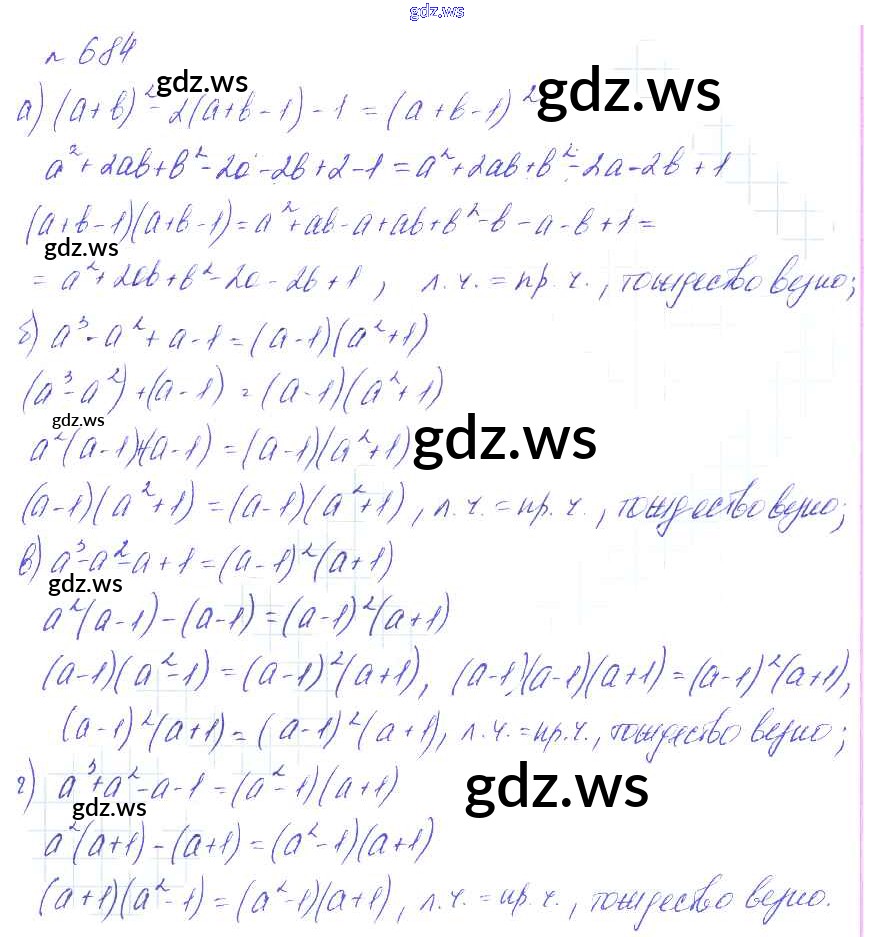 gdz.ws
№ 684
gdz.ws
gdz.ws
а) (a+b)² - 2(a+b-1) - 1 = (a+b-1)²
a² + 2ab + b² - 2a - 2b + 2 - 1 = a² + 2ab + b² - 2a - 2b + 1
(a+b-1)(a+b-1) = a² + ab - a + ab + b² - b - a - b + 1 =
gdz.ws
= a² + 2ab + b² - 2a - 2b + 1, л.ч. = пр.ч., тождество верно;
б) a³ - a² + a - 1 = (a-1)(a²+1)
(a³ - a²) + (a-1) = (a-1)(a²+1)
gdz.ws
gdz.ws
a²(a-1)+(a-1) = (a-1)(a²+1)
(a-1)(a²+1) = (a-1)(a²+1), л.ч. = пр.ч., тождество верно;
в) a³ - a² - a + 1 = (a-1)²(a+1)
gdz.ws
a²(a-1) - (a-1) = (a-1)²(a+1)
(a-1)(a²-1) = (a-1)²(a+1), (a-1)(a-1)(a+1) = (a-1)²(a+1),
(a-1)²(a+1) = (a-1)²(a+1), л.ч. = пр.ч., тождество верно;
г) a³ + a² - a - 1 = (a²-1)(a+1)
gdz.ws
gdz.ws
a²(a+1) - (a+1) = (a²-1)(a+1)
(a+1)(a²-1) = (a²-1)(a+1), л.ч. = пр.ч., тождество верно.